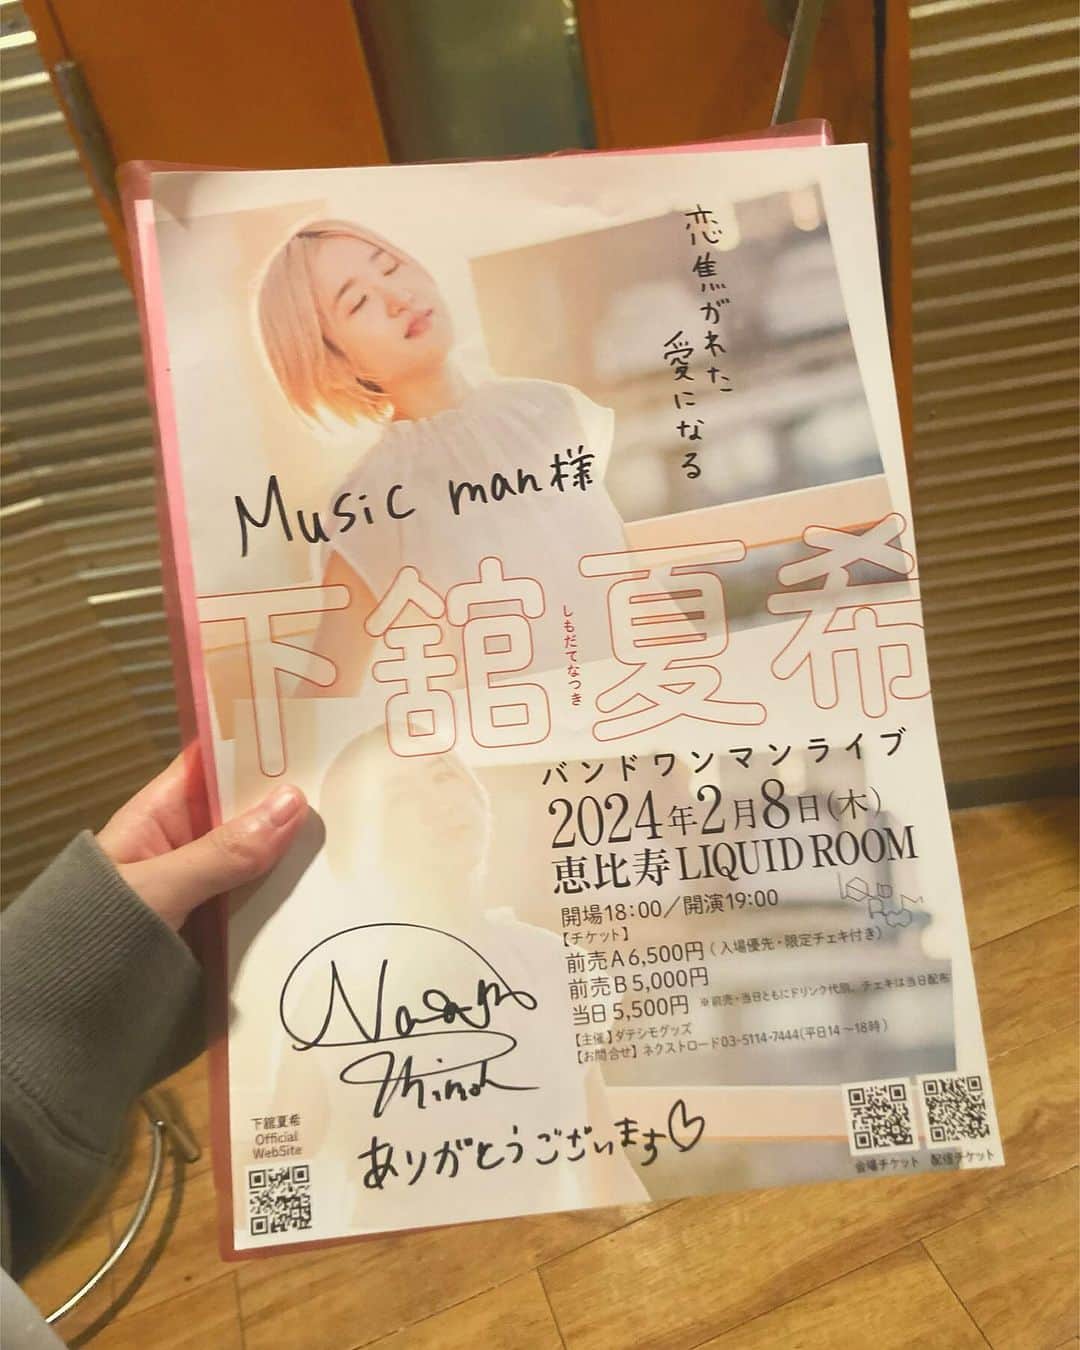 恋焦がれた
愛になる
Music man様
下舘夏希
しもだてなつき
バンドワンマンライブ
2024年2月8日(木)
恵比寿 LIQUID ROOM
開場18:00/開演19:00
【チケット】
前売A 6,500円(入場優先・限定チェキ付き)
前売B 5,000円
当日 5,500円 ※前売・当日ともにドリンク代別。チェキは当日配布
【主催】ダテシモグッズ
【お問合せ】ネクストロード03-5114-7444(平日14〜18時)
ありがとうございます♡
下舘夏希
Official
WebSite
会場チケット
配信チケット